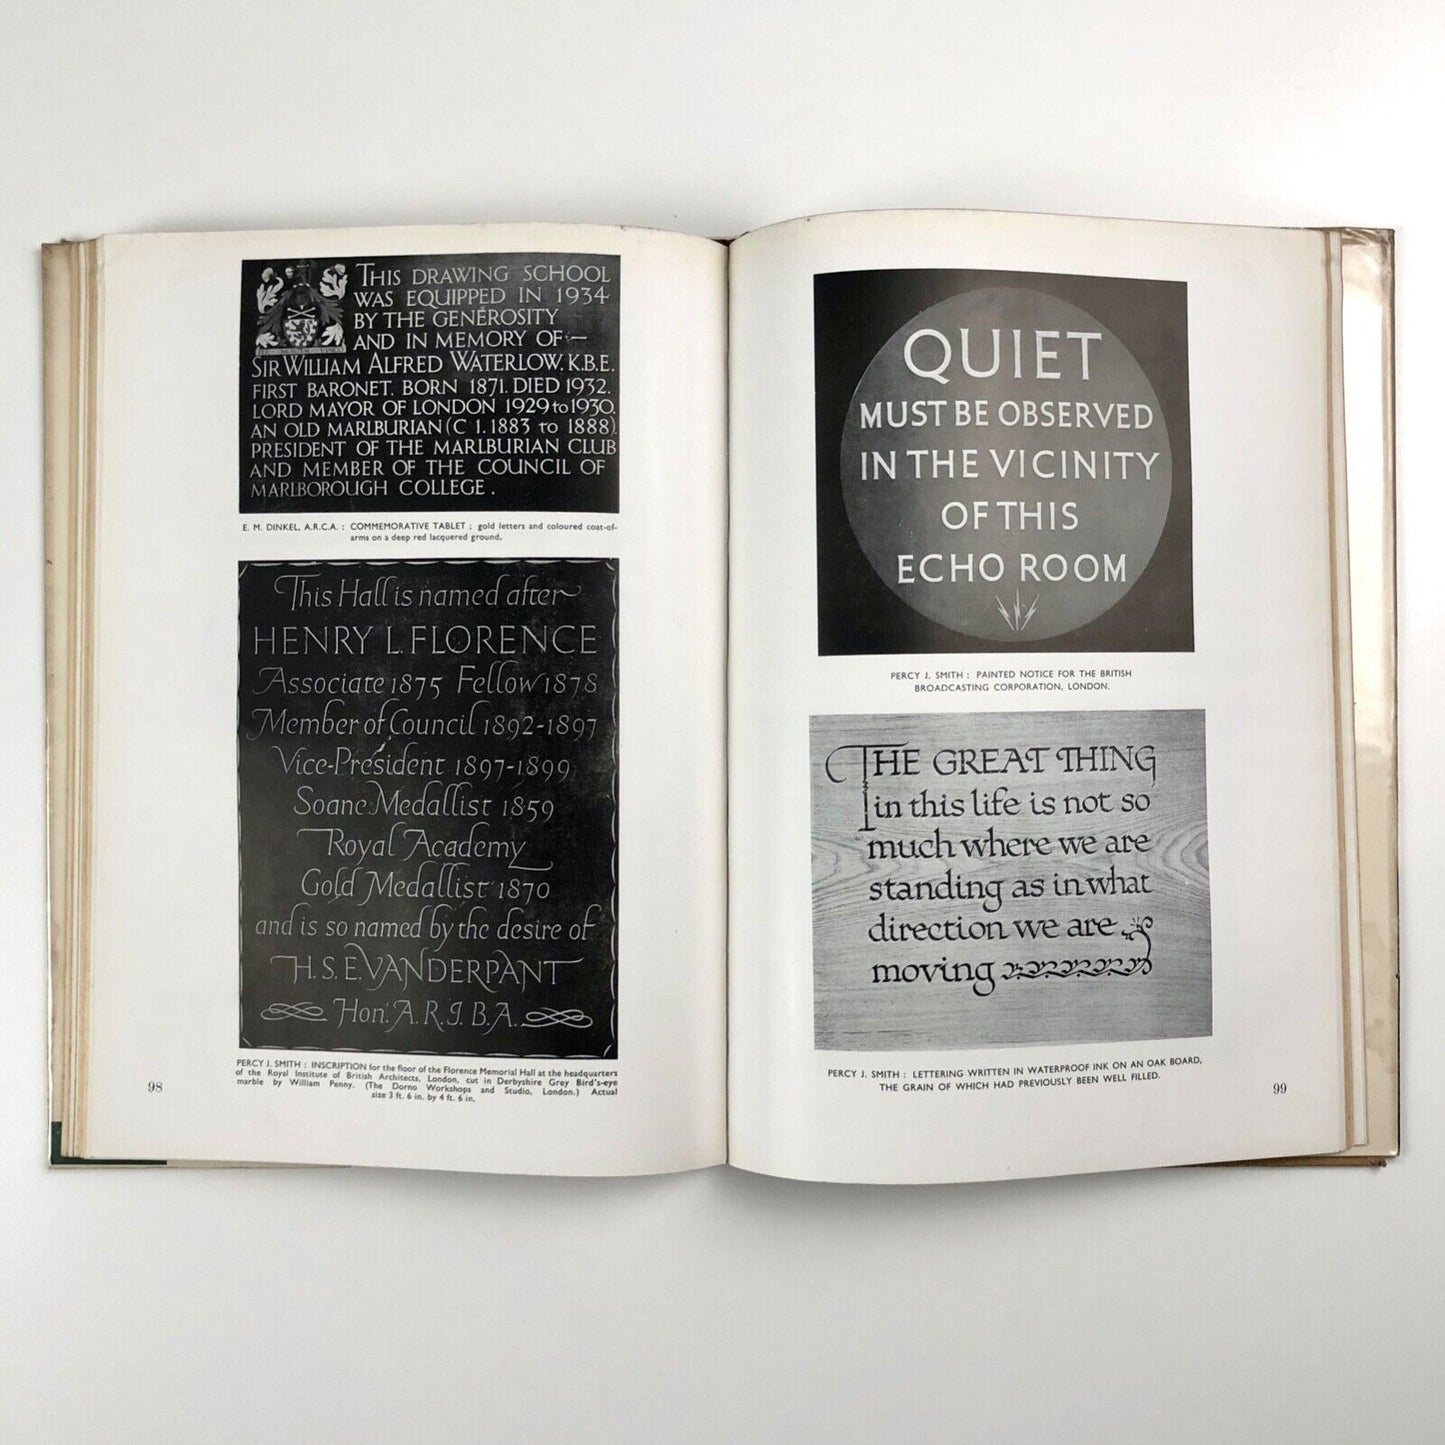 PER MORTEM VINCO
THIS DRAWING SCHOOL
WAS EQUIPPED IN 1934
BY THE GENEROSITY
AND IN MEMORY OF —
SIR WILLIAM ALFRED WATERLOW. K.B.E.
FIRST BARONET. BORN 1871. DIED 1932.
LORD MAYOR OF LONDON 1929 to 1930.
AN OLD MARLBURIAN (C 1. 1883 to 1888).
PRESIDENT OF THE MARLBURIAN CLUB
AND MEMBER OF THE COUNCIL OF
MARLBOROUGH COLLEGE.
E. M. DINKEL, A.R.C.A. : COMMEMORATIVE TABLET ; gold letters and coloured coat-of-
arms on a deep red lacquered ground.
This Hall is named after
HENRY L. FLORENCE
Associate 1875 Fellow 1878
Member of Council 1892-1897
Vice-President 1897-1899
Soane Medallist 1859
Royal Academy
Gold Medallist 1870
and is so named by the desire of
H. S. E. VANDERPANT
Hon: A. R. I. B. A.
PERCY J. SMITH : INSCRIPTION for the floor of the Florence Memorial Hall at the headquarters
of the Royal Institute of British Architects, London, cut in Derbyshire Grey Bird's-eye
marble by William Penny. (The Dorno Workshops and Studio, London.) Actual
size 3 ft. 6 in. by 4 ft. 6 in.
98
QUIET
MUST BE OBSERVED
IN THE VICINITY
OF THIS
ECHO ROOM
PERCY J. SMITH : PAINTED NOTICE FOR THE BRITISH
BROADCASTING CORPORATION, LONDON.
THE GREAT THING
in this life is not so
much where we are
standing as in what
direction we are
moving
PERCY J. SMITH : LETTERING WRITTEN IN WATERPROOF INK ON AN OAK BOARD,
THE GRAIN OF WHICH HAD PREVIOUSLY BEEN WELL FILLED.
99